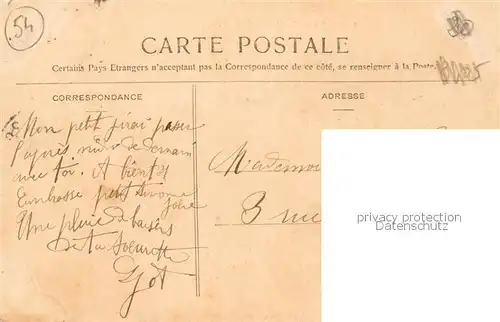 54
CARTE POSTALE
Certains Pays Etrangers n'acceptant pas la Correspondance de ce côté, se renseigner à la Poste
CORRESPONDANCE
ADRESSE
Mon petit j'irai passer
l'après midi de demain
avec toi. A bientôt
Embrasse petit Simone
Une pluie de baisers
de ta soeurette
Mademoi
3 rue
privacy protection
Datenschutz